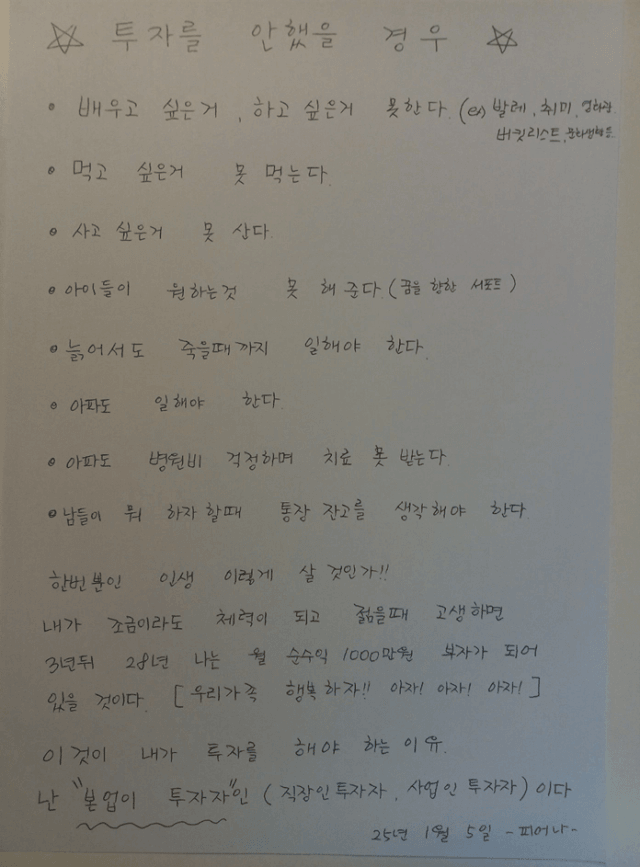 ☆ 투자를 안했을 경우 ☆
• 배우고 싶은거, 하고 싶은거 못한다. (ex) 발레, 취미, 영화관
버킷리스트, 문화생활 등
• 먹고 싶은거 못 먹는다.
• 사고 싶은거 못 산다.
• 아이들이 원하는것 못 해 준다. (꿈을 향한 서포트)
• 늙어서도 죽을때까지 일해야 한다.
• 아파도 일해야 한다.
• 아파도 병원비 걱정하며 치료 못 받는다.
• 남들이 뭐 하자 할때 통장 잔고를 생각해야 한다
한번뿐인 인생 이렇게 살 것인가!!
내가 조금이라도 체력이 되고 젊을때 고생하면
3년뒤 28년 나는 월 순수익 1000만원 부자가 되어
있을 것이다. [우리가족 행복하자!! 아자! 아자! 아자!]
이것이 내가 투자를 해야 하는 이유.
난 "본업이 투자자"인 (직장인 투자자, 사업인 투자자) 이다
25년 1월 5일 -피어나-